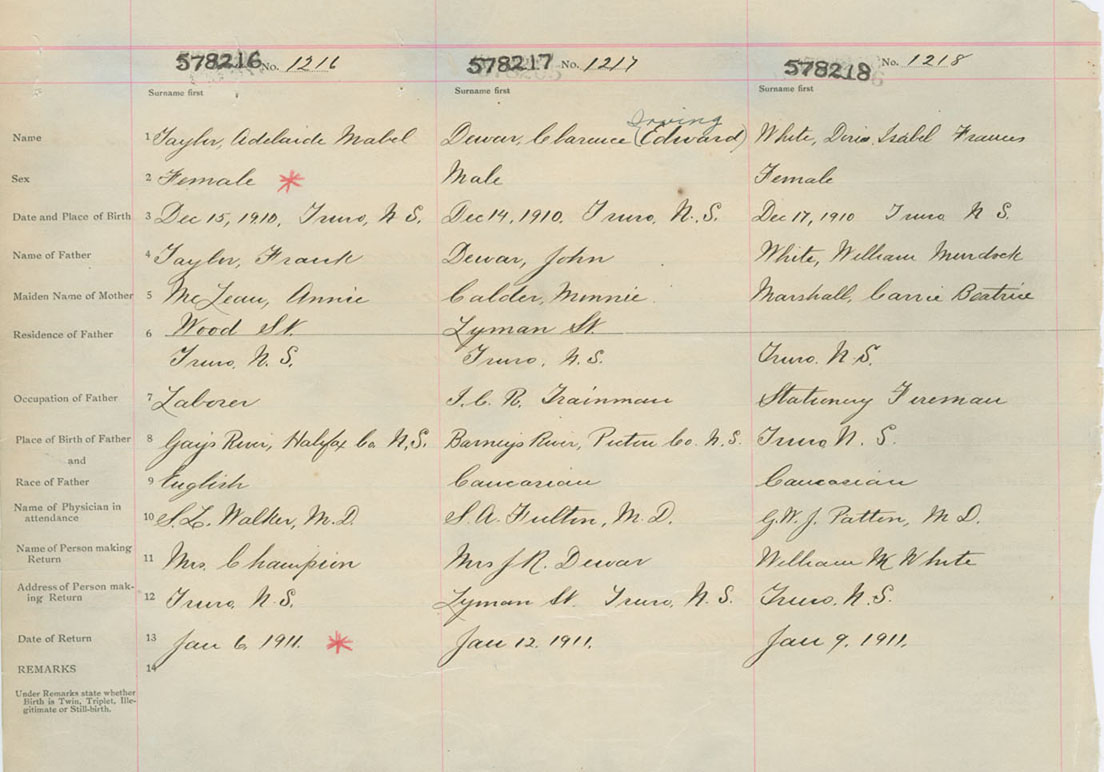 578216 No. 1216 578217 No. 1217 578218 No. 1218
Surname first Surname first Surname first
Irving
Name 1 Taylor, Adelaide Mabel Dewar, Clarence (Edward) White, Doris Isabel Frances
Sex 2 Female Male Female
Date and Place of Birth 3 Dec 15, 1910, Truro, N.S. Dec 14, 1910, Truro, N.S. Dec 17, 1910 Truro N S.
Name of Father 4 Taylor, Frank Dewar, John White, William Murdock
Maiden Name of Mother 5 McLean, Annie Calder, Minnie Marshall, Carrie Beatrice
Residence of Father 6 Wood St. Lyman St.
Truro, N.S. Truro, N.S. Truro, N.S.
Occupation of Father 7 Laborer I.C.R. Trainman Stationery Fireman
Place of Birth of Father 8 Gays River, Halifax Co. N.S. Barneys River, Pictou Co. N.S. Truro N.S.
and
Race of Father 9 English Caucasian Caucasian
Name of Physician in
attendance 10 S.L. Walker, M.D. S.A. Fulton, M.D. G.W.J. Patton, M D.
Name of Person making
Return 11 Mrs. Champion Mrs J.R. Dewar William M White
Address of Person mak-
ing Return 12 Truro, N.S. Lyman St. Truro, N.S. Truro, N.S.
Date of Return 13 Jan 6, 1911. Jan 12, 1911. Jan 9, 1911.
REMARKS 14
Under Remarks state whether
Birth is Twin, Triplet, Ille-
gitimate or Still-birth.